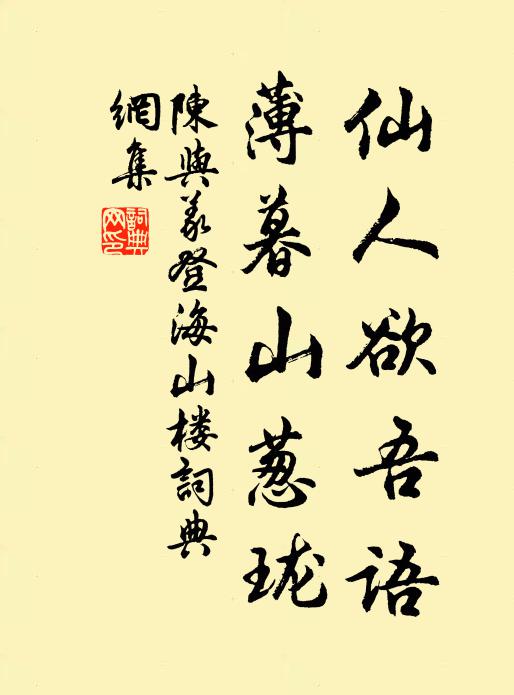 仙人欲吾语
薄暮山葱珑
陳與義登海山楼詞典
網集
詞典網印